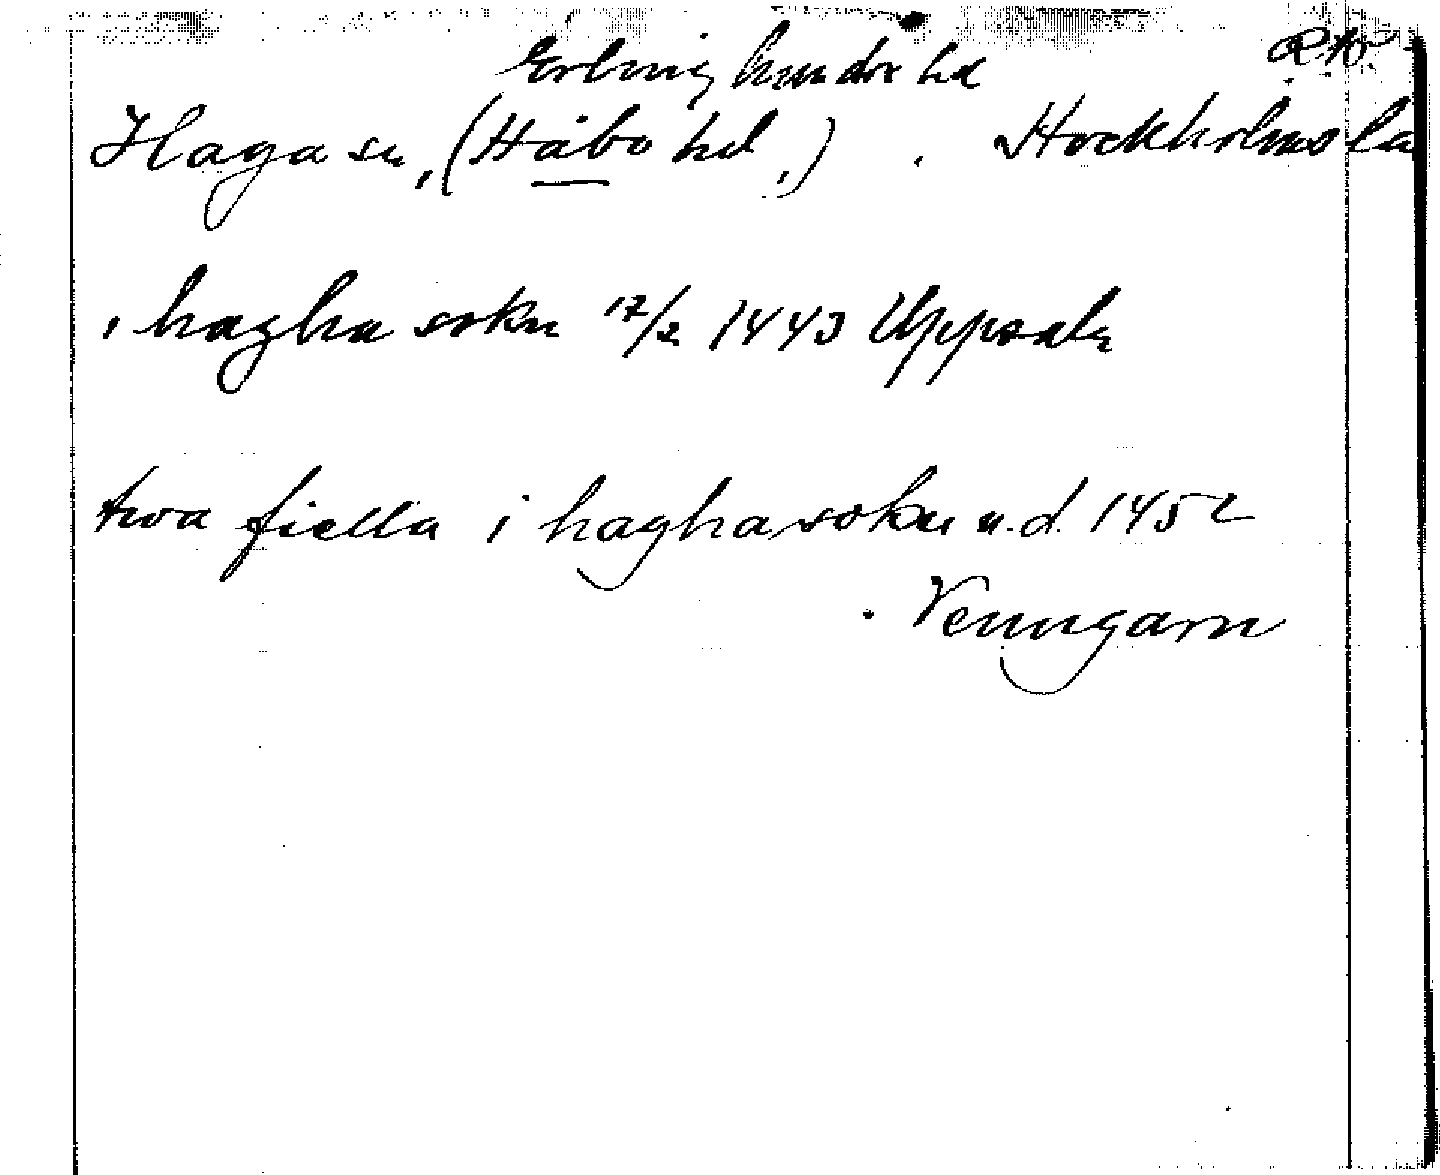 Erlinghundra hd RAp.
Haga sn, (Håbo hd,). Stockholms la
i hagha sokn 17/2 1443 Uppsala
twa fiella i hagha sokn u.d. 1452
Venngarn